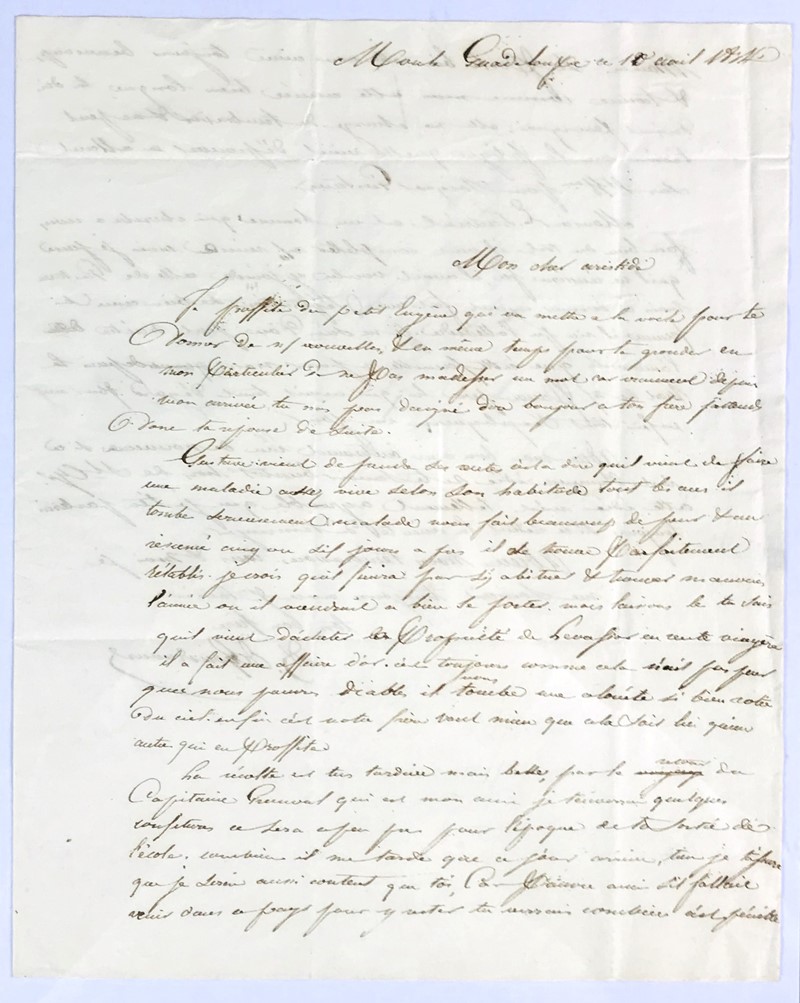 Moule Guadeloupe ce 18 avril 1834
Mon cher aristide
Je proffite du petit Eugène qui va mettre a la voile pour te
donner de n/ nouvelles, & en même temps pour te gronder en
mon particulier de ne pas un mot car vraiment depuis
mon arrivée tu nas pas daigné dire bonjour a ton frere
Donc ta reponse de suite.
Gustave vient de cest a dire quil vient de faire
une maladie assez vive selon son habitude tout les ans il
tombe serieusement malade nous fait beaucoup de peur & en
cinq ou six jours a pas il se trouve parfaitement
rétablis. je crois quil finira par sy abituer & trouver mauvais
l'année ou il viendrait a bien se porter. mais laissons le tu sais
quil vient dacheter la Propriété de en rente viagère
il a fait une affaire d'or. cest toujours comme cela nait pas peur
que nous pauvres diables il nous tombe une alouète si bien rotie
Du ciel. enfin cest notre frère vaut mieu que cela soit lui quun
autre qui en proffite
La récolte est tres tardive mais belle, par le retour du
Capitaine qui est mon ami je tenverrai quelques
confitures ce sera a peu pres pour l'époque de ta sortie de
l'école. combien il me tarde que ce jour arrive, tien je tassure
que je serai aussi content que toi, Car pauvre ami sil fallait
venir dans ce pays pour y rester tu verrais combien cest pénible